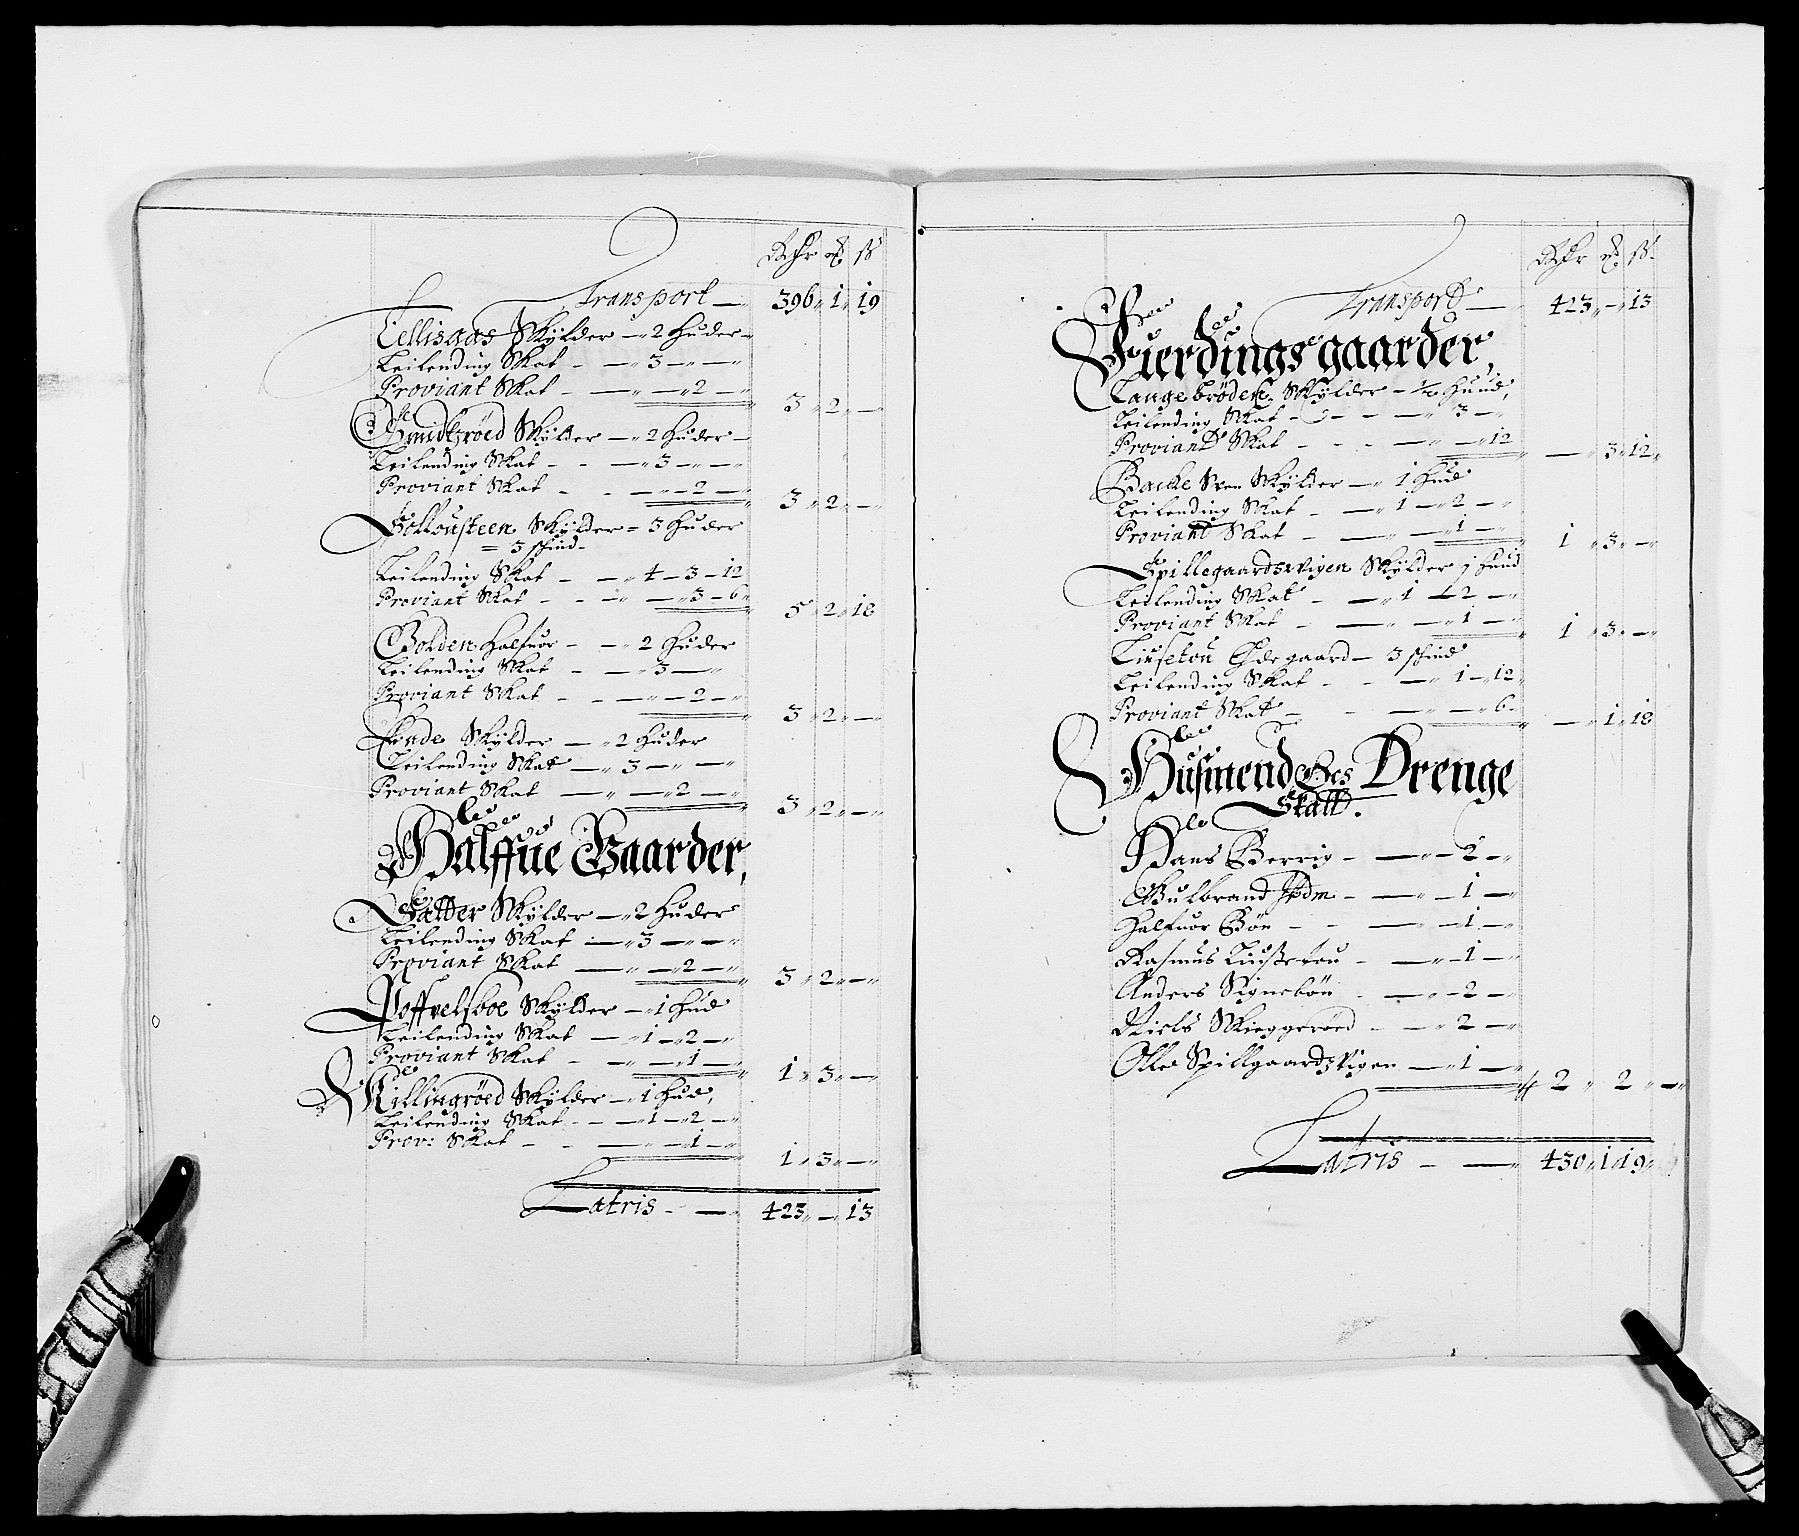 Rdr ort ß
Transport — 396 „ 1 „ 19
Tellisaas Skylder — „ 2 huder
Leilending Skat - — „ 3 — „ — „
Proviant Skat - — „ — „ 2 — „
3 „ 2 „ — „
Smidtzröed Skylder — „ 2 huder —
Leilending Skat - - — „ 3 — „ — „
Proviant Skat - - — „ — 2 — „
3 „ 2 „ — „
Skylder = 3 huder
= 3 skind -
Leilending Skat - — „ 4 — 3 — 12
Proviant Skat - - — „ — „ 3 — 6 „
5 „ 2 „ 18
Bolden Halfuor - — „ 2 huder
Leilending Skat - — „ 3 — „ — „
Proviant Skat - - — „ — 2 — „
3 „ 2 „ — „
Skylder — „ 2 huder
Leilending Skat — „ 3 — „ — „
Proviant Skat — „ — „ 2 — „
3 „ 2 „ — „
Halffue Gaarder,
Skylder — „ 2 huder
Leilending Skat — „ 3 — „ — „
Proviant Skat — „ — „ 2 — „
3 „ 2 „ — „
Poffvelsboe Skylder — „ 1 hud
Leilending Skat — „ 1 — „ 2 — „
Proviant Skat - — „ — „ 1 — „
1 „ 3 „ — „
Killingröed Skylder — „ 1 hud,
Leilending Skat - - — „ 1 — „ 2 — „
Prov: Skat - - — „ — „ 1 — „
1 „ 3 „ — „
Latris - — „ 423 „ — „ 13
Rdr ort ß
Transport — 423 „ — „ 13
Fierdings gaarder,
Langebröck Skylder — ½ huud,
Leilending Skat - - - — „ 3 — „
Proviant Skat - - - — „ — „ 12
— „ 3 „ 12 „
Backe Sven Skylder — „ 1 hud
Leilending Skat - — „ 1 — „ 2 — „
Proviant Skat - — „ — „ 1 — „
1 „ 3 „ — „
Spillegaardsvigen Skylder j huud
Leilending Skat - — „ 1 — 2 — „
Proviant Skat - — „ — „ 1 — „
1 „ 3 „ — „
Liusetou Ödegaard — 3 skind
Leilending Skat - - — „ 1 — „ 12 „
Proviant Skat - - — „ — „ 6 „
— „ 1 „ 18
Husmend Oc Drenge
Skatt.
Hans Berrig - — „ — 2 — „
Gulbrand Ibdm - — „ — 1 — „
Halfuor Bön - - — „ — 1 — „
Rasmus Liussetou - — „ — 1 — „
Anders Signebön - — „ — 2 — „
Niels Skieggeröed - - — „ 2 — „
Olle Spillgaardzvigen — „ 1 — „
2 „ 2 „ — „
Latris - — „ 430 „ 1 „ 19 „